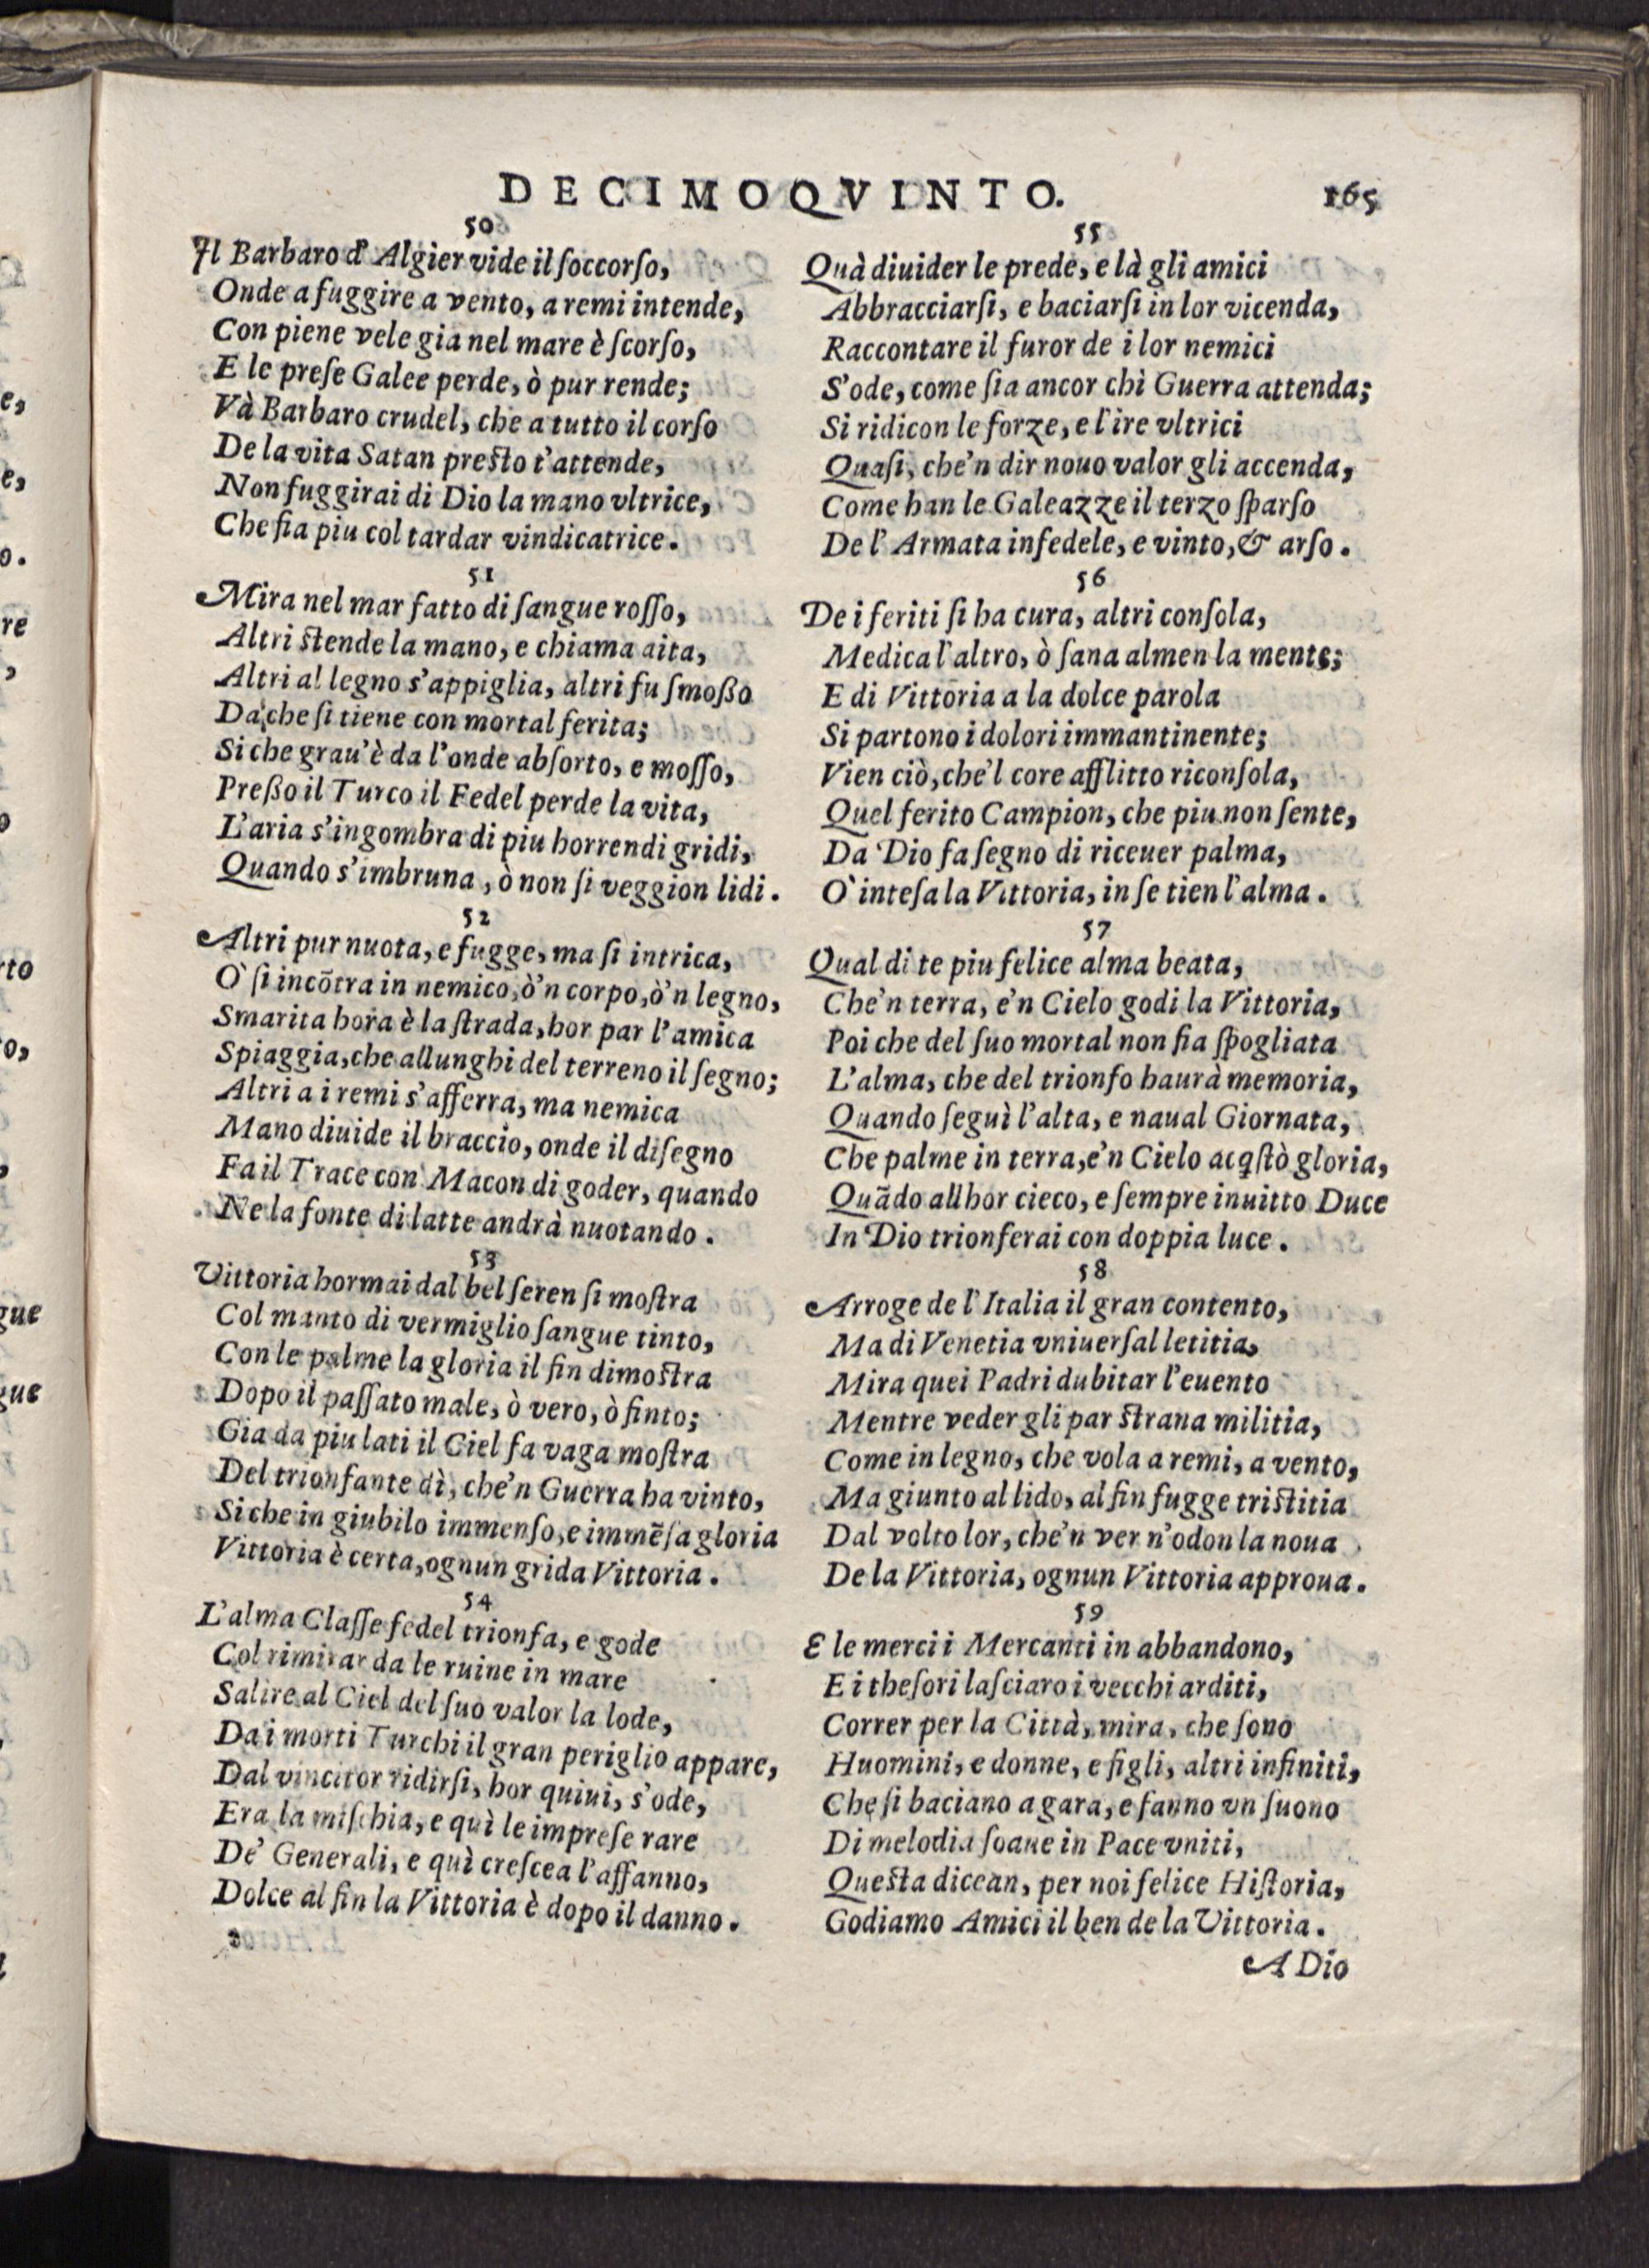 DECIMOQVINTO. 165
50
Il Barbaro d' Algier vide il ſoccorſo,
Onde a fuggire a vento, a remi intende,
Con piene vele gia nel mare è ſcorſo,
E le preſe Galee perde, ò pur rende;
Và Barbaro crudel, che a tutto il corſo
De la vita Satan presto t'attende,
Non fuggirai di Dio la mano vltrice,
Che fia piu col tardar vindicatrice.
51
Mira nel mar fatto di ſangue roſſo,
Altri stende la mano, e chiama aita,
Altri al legno s'appiglia, altri fu ſmoßo
Da che ſi tiene con mortal ferita;
Si che grau'è da l'onde abſorto, e moſſo,
Preßo il Turco il Fedel perde la vita,
L'aria s'ingombra di piu horrendi gridi,
Quando s'imbruna, ò non ſi veggion lidi.
52
Altri pur nuota, e fugge, ma ſi intrica,
Ò ſi incõtra in nemico, ò'n corpo, ò'n legno,
Smarita hora è la ſtrada, hor par l'amica
Spiaggia, che allunghi del terreno il ſegno;
Altri a i remi s'afferra, ma nemica
Mano diuide il braccio, onde il diſegno
Fa il Trace con Macon di goder, quando
Ne la fonte di latte andrà nuotando.
53
Vittoria hormai dal bel ſeren ſi moſtra
Col manto di vermiglio ſangue tinto,
Con le palme la gloria il fin dimostra
Dopo il paſſato male, ò vero, ò finto;
Gia da piu lati il Ciel fa vaga moſtra
Del trionfante dì, che'n Guerra ha vinto,
Si che in giubilo immenſo, e immẽſa gloria
Vittoria è certa, ognun grida Vittoria.
54
L'alma Claſſe fedel trionfa, e gode
Col rimirar da le ruine in mare
Salire al Ciel del ſuo valor la lode,
Da i morti Turchi il gran periglio appare,
Dal vincitor ridirſi, hor quiui, s'ode,
Era la miſchia, e quì le impreſe rare
De' Generali, e quì creſcea l'affanno,
Dolce al fin la Vittoria è dopo il danno.
55
Quà diuider le prede, e là gli amici
Abbracciarſi, e baciarſi in lor vicenda,
Raccontare il furor de i lor nemici
S'ode, come ſia ancor chì Guerra attenda;
Si ridicon le forze, e l'ire vltrici
Quaſi, che'n dir nouo valor gli accenda,
Come han le Galeazze il terzo ſparſo
De l' Armata infedele, e vinto, & arſo.
56
De i feriti ſi ha cura, altri conſola,
Medica l'altro, ò ſana almen la mente;
E di Vittoria a la dolce parola
Si partono i dolori immantinente;
Vien ciò, che'l core afflitto riconſola,
Quel ferito Campion, che piu non ſente,
Da Dio fa ſegno di riceuer palma,
O' inteſa la Vittoria, in ſe tien l'alma.
57
Qual di te piu felice alma beata,
Che'n terra, e'n Cielo godi la Vittoria,
Poi che del ſuo mortal non fia ſpogliata
L'alma, che del trionfo haurà memoria,
Quando ſeguì l'alta, e naual Giornata,
Che palme in terra, e'n Cielo acq̃ſtò gloria,
Quãdo allhor cieco, e ſempre inuitto Duce
In Dio trionferai con doppia luce.
58
Arroge de l'Italia il gran contento,
Ma di Venetia vniuerſal letitia,
Mira quei Padri dubitar l'euento
Mentre veder gli par strana militia,
Come in legno, che vola a remi, a vento,
Ma giunto al lido, al fin fugge tristitia
Dal volto lor, che'n ver n'odon la noua
De la Vittoria, ognun Vittoria approua.
59
E le merci i Mercanti in abbandono,
E i theſori laſciaro i vecchi arditi,
Correr per la Città, mira, che ſono
Huomini, e donne, e figli, altri infiniti,
Che ſi baciano a gara, e fanno vn ſuono
Di melodia ſoaue in Pace vniti,
Questa dicean, per noi felice Hiſtoria,
Godiamo Amici il ben de la Vittoria.
A Dio